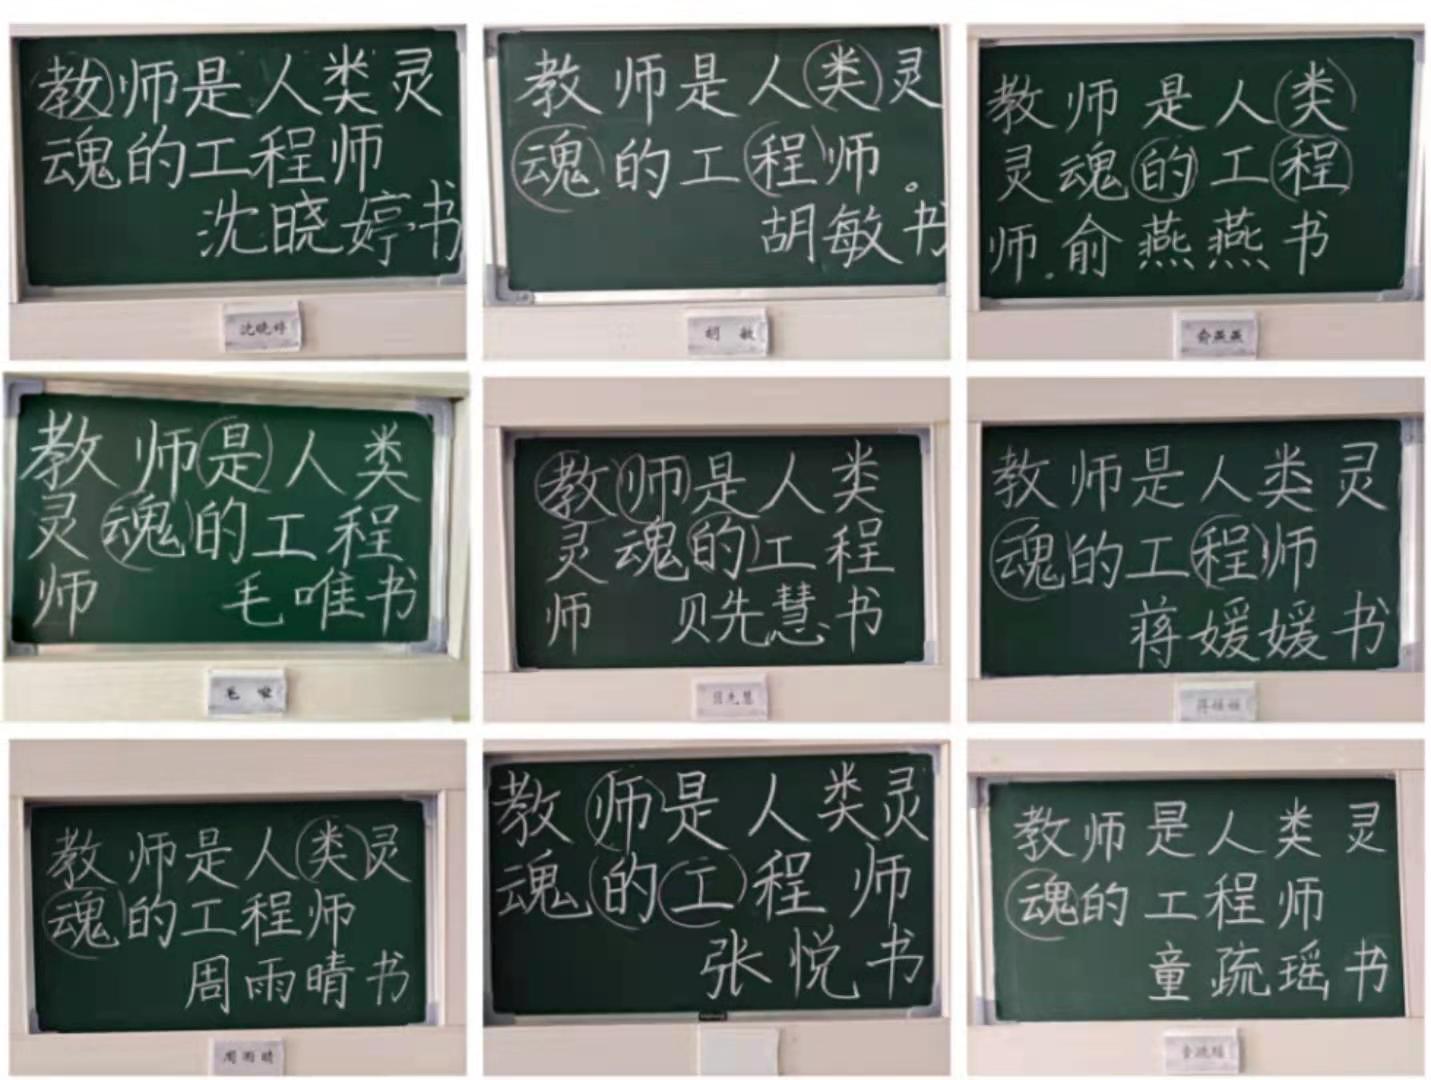 教师是人类灵
魂的工程师
沈晓婷书
沈晓婷
教师是人类灵
魂的工程师。
胡敏书
胡 敏
教师是人类
灵魂的工程
师.俞燕燕书
俞燕燕
教师是人类
灵魂的工程
师 毛唯书
毛 唯
教师是人类
灵魂的工程
师 贝先慧书
教师是人类灵
魂的工程师
蒋媛媛书
蒋媛媛
教师是人类灵
魂的工程师
周雨晴书
周雨晴
教师是人类灵
魂的工程师
张悦书
教师是人类灵
魂的工程师
童疏瑶书
童疏瑶